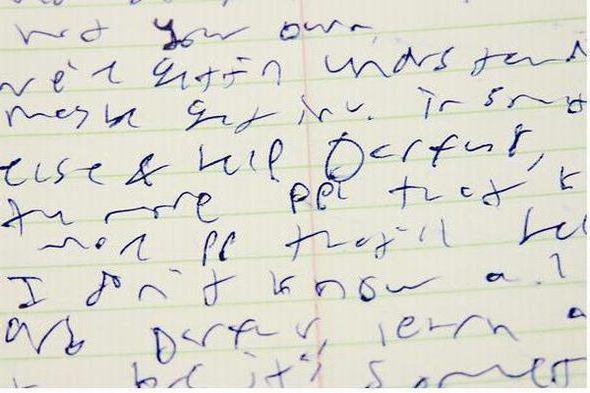 not your own
we're gettin undrstand
maybe get inv. in som
else & help Darfur,
the more ppl that k
mor pp that'll hel
I don't know al
are Darfur, learn a
it's somet